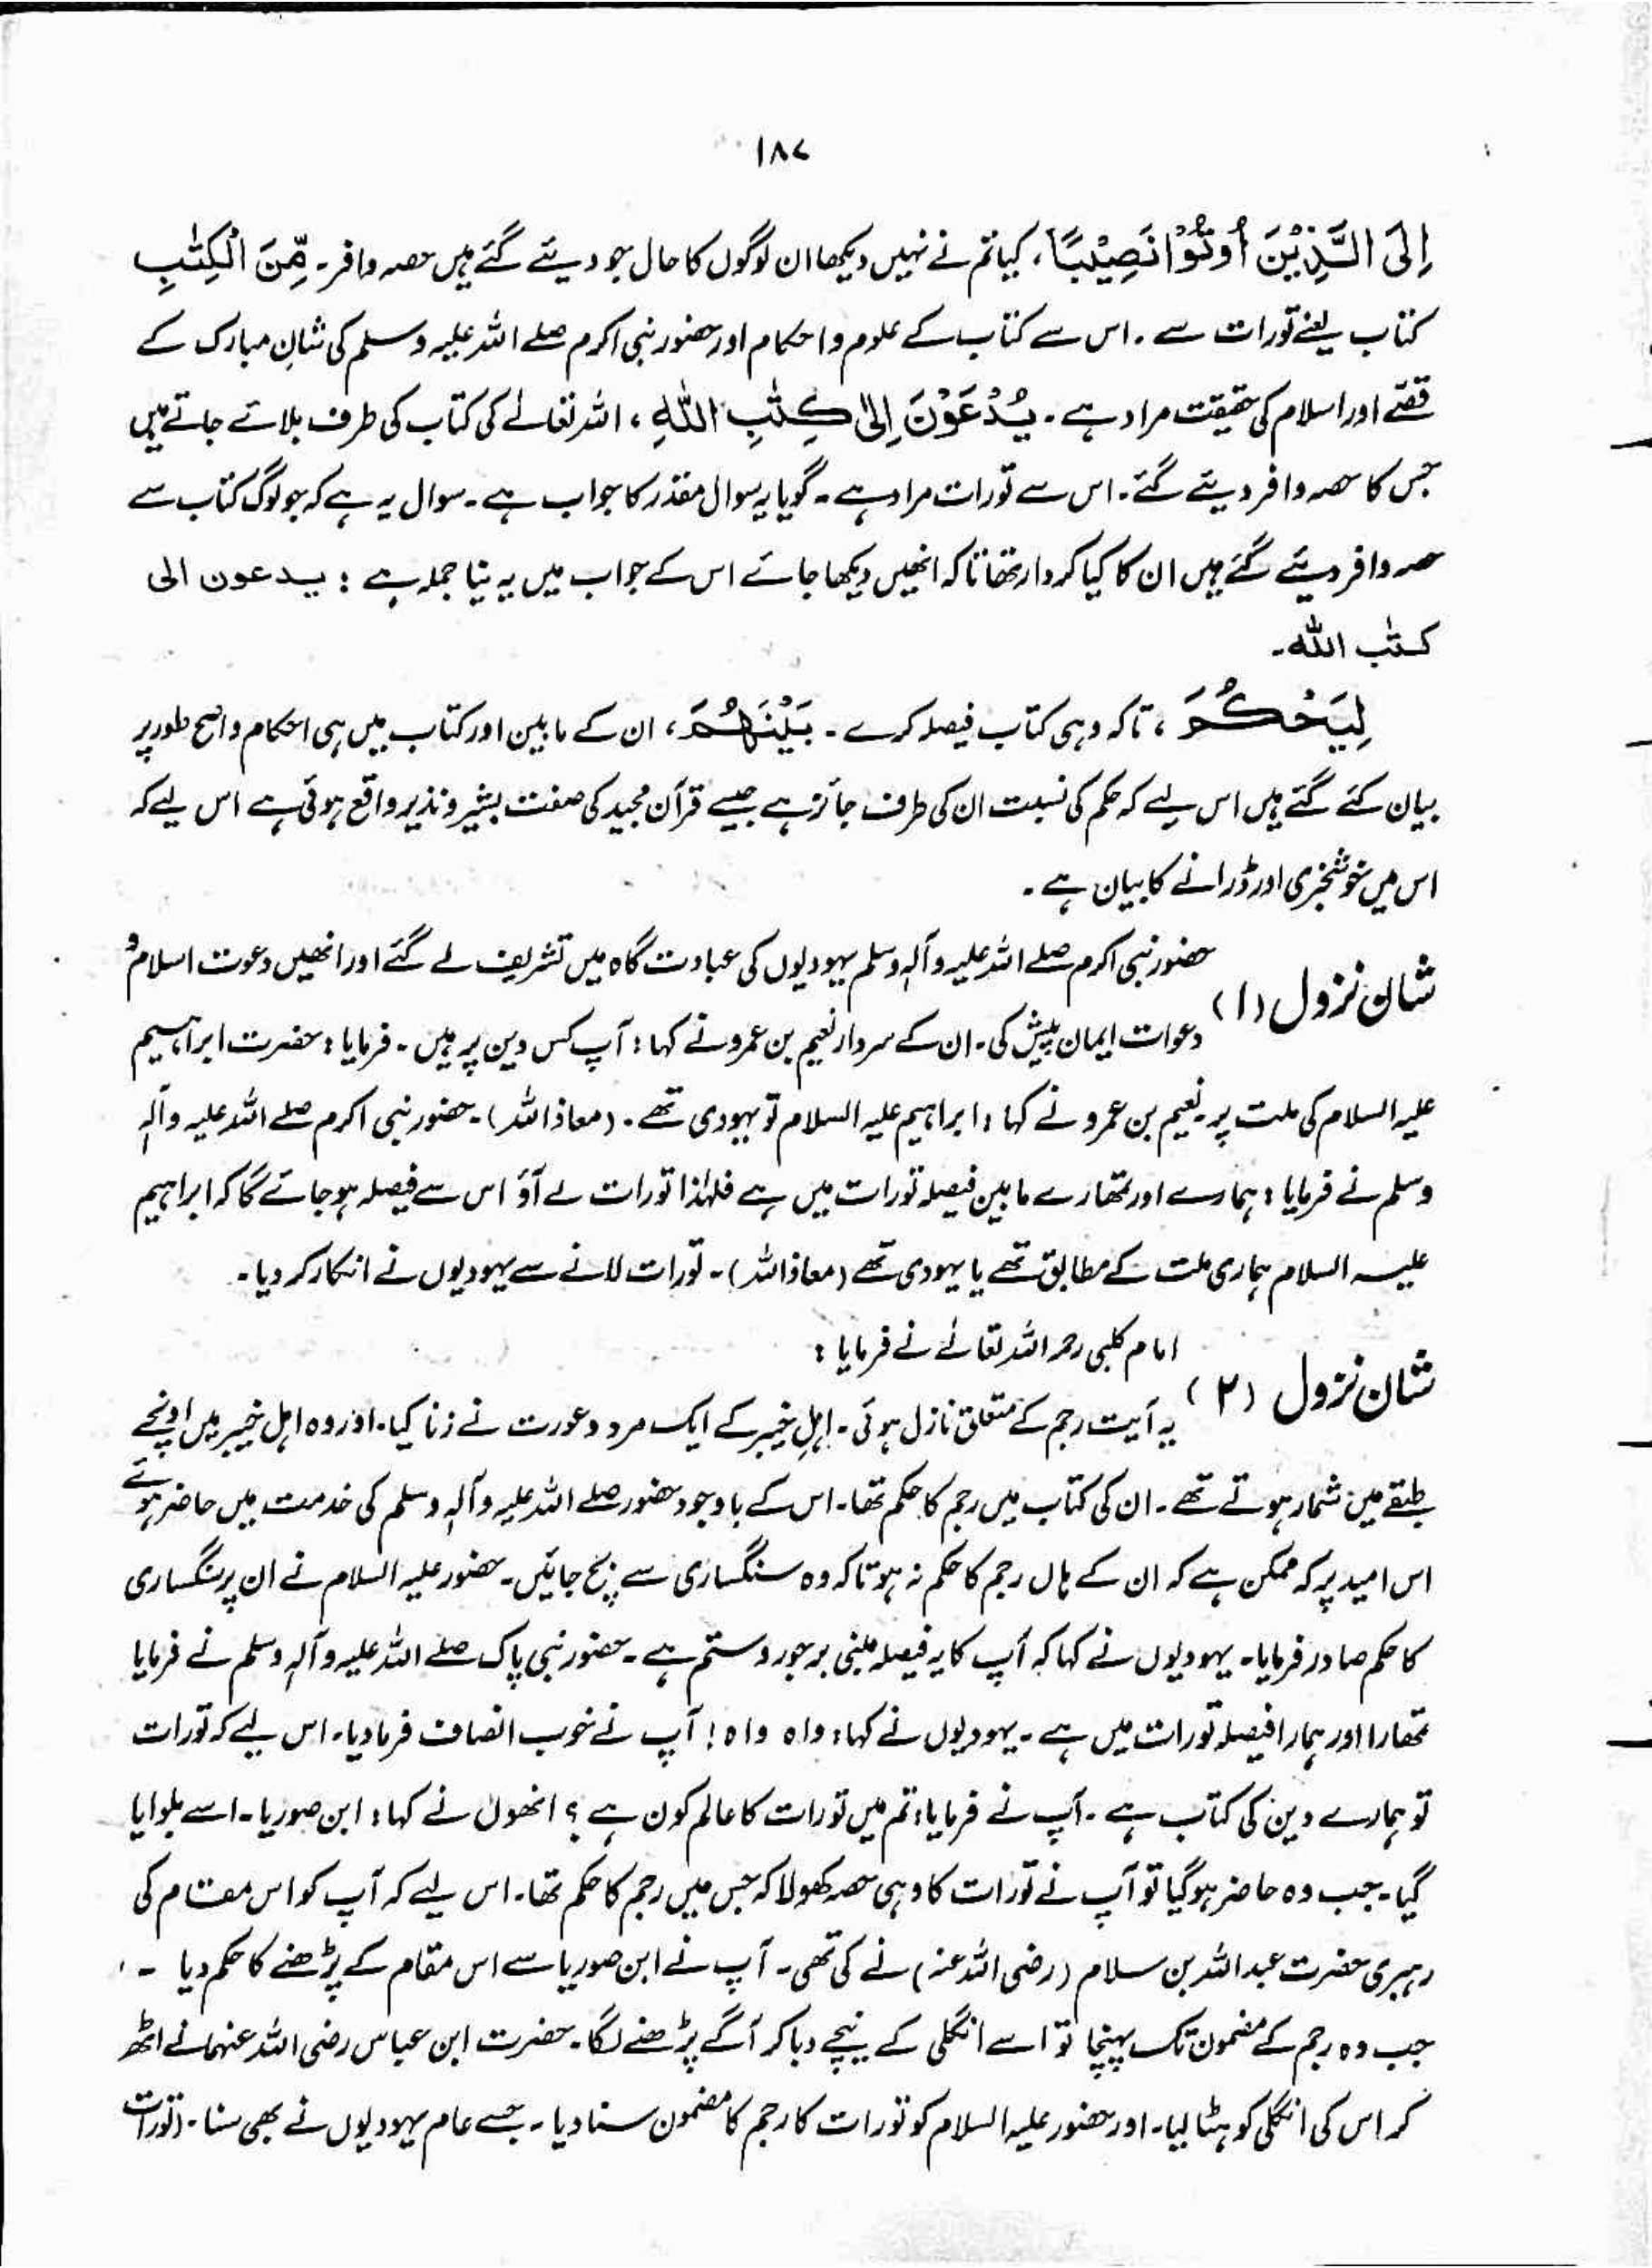 ۱۸۷
اِلَى الَّذِيْنَ اُوْتُوْا نَصِيْبًا، کیا تم نے نہیں دیکھا ان لوگوں کا حال جو دیئے گئے ہیں حصہ وافر۔ مِّنَ الْكِتٰبِ
کتاب یعنے تورات سے ۔ اس سے کتاب کے علوم و احکام اور حضور نبی اکرم صلے اللہ علیہ وسلم کی شانِ مبارک کے
قصّے اور اسلام کی حقیقت مراد ہے۔ يُدْعَوْنَ اِلٰى كِتٰبِ اللهِ ، اللہ تعالےٰ کی کتاب کی طرف بلائے جاتے ہیں
جس کا حصہ وافر دیئے گئے۔ اس سے تورات مراد ہے۔ گویا یہ سوال مقدر کا جواب ہے۔ سوال یہ ہے کہ جو لوگ کتاب سے
حصہ وافر دیئے گئے ہیں ان کا کیا کردار تھا تاکہ انھیں دیکھا جائے اس کے جواب میں یہ نیا جملہ ہے : یدعون الی
کتٰب اللہ۔
لِيَحْكُمَ ، تاکہ وہی کتاب فیصلہ کرے ۔ بَيْنَهُمْ ، ان کے مابین اور کتاب میں ہی احکام واضح طور پر
بیان کئے گئے ہیں اس لیے کہ حکم کی نسبت ان کی طرف جائز ہے جیسے قرآن مجید کی صفت بشیر و نذیر واقع ہوئی ہے اس لیے کہ
اس میں خوشخبری اور ڈرانے کا بیان ہے ۔
شان نزول (۱) حضور نبی اکرم صلے اللہ علیہ وآلہٖ وسلم یہودیوں کی عبادت گاہ میں تشریف لے گئے اور انھیں دعوت اسلام و
دعوات ایمان پیش کی۔ ان کے سردار نعیم بن عمرو نے کہا : آپ کس دین پر ہیں ۔ فرمایا : حضرت ابراہیم
علیہ السلام کی ملت پر۔ نعیم بن عمرو نے کہا : ابراہیم علیہ السلام تو یہودی تھے۔ (معاذ اللہ) ۔ حضور نبی اکرم صلے اللہ علیہ وآلہٖ
وسلم نے فرمایا : ہمارے اور تمھارے مابین فیصلہ تورات میں ہے فلہٰذا تورات لے آؤ اس سے فیصلہ ہو جائے گا کہ ابراہیم
علیہ السلام ہماری ملت کے مطابق تھے یا یہودی تھے (معاذ اللہ)۔ تورات لانے سے یہودیوں نے انکار کر دیا۔
شان نزول (۲) امام کلبی رحمہ اللہ تعالےٰ نے فرمایا :
یہ آیت رجم کے متعلق نازل ہوئی ۔ اہلِ خیبر کے ایک مرد و عورت نے زنا کیا۔ اور وہ اہل خیبر میں اونچے
طبقے میں شمار ہوتے تھے ۔ ان کی کتاب میں رجم کا حکم تھا۔ اس کے باوجود حضور صلے اللہ علیہ وآلہٖ وسلم کی خدمت میں حاضر ہوئے
اس امید پر کہ ممکن ہے کہ ان کے ہاں رجم کا حکم نہ ہو تاکہ وہ سنگساری سے بچ جائیں۔ حضور علیہ السلام نے ان پر سنگساری
کا حکم صادر فرمایا۔ یہودیوں نے کہا کہ آپ کا یہ فیصلہ مبنی بر جور و ستم ہے ۔ حضور نبی پاک صلے اللہ علیہ وآلہٖ وسلم نے فرمایا
تمھارا اور ہمارا فیصلہ تورات میں ہے ۔ یہودیوں نے کہا : واہ واہ ! آپ نے خوب انصاف فرما دیا۔ اس لیے کہ تورات
تو ہمارے دین کی کتاب ہے ۔ آپ نے فرمایا : تم میں تورات کا عالم کون ہے ؟ انھوں نے کہا : ابن صوریا۔ اسے بلوایا
گیا ۔ جب وہ حاضر ہو گیا تو آپ نے تورات کا وہی حصہ کھولا کہ جس میں رجم کا حکم تھا۔ اس لیے کہ آپ کو اس مقام کی
رہبری حضرت عبداللہ بن سلام (رضی اللہ عنہ) نے کی تھی۔ آپ نے ابن صوریا سے اس مقام کے پڑھنے کا حکم دیا ۔
جب وہ رجم کے مضمون تک پہنچا تو اسے انگلی کے نیچے دبا کر آگے پڑھنے لگا۔ حضرت ابن عباس رضی اللہ عنہما نے اٹھ
کر اس کی انگلی کو ہٹا لیا۔ اور حضور علیہ السلام کو تورات کا رجم کا مضمون سنا دیا ۔ جسے عام یہودیوں نے بھی سنا ۔ (تورات